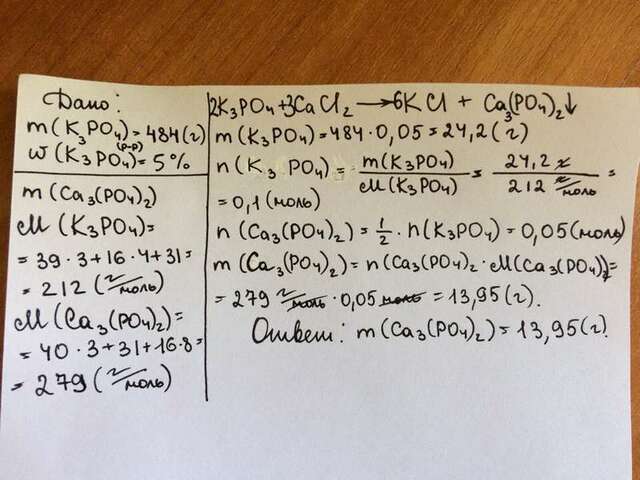 Дано:
m(K₃PO₄)=484(г)
(р-р)
w(K₃PO₄)=5%
m(Ca₃(PO₄)₂)
M(K₃PO₄)=
=39·3+16·4+31=
=212(г/моль)
M(Ca₃(PO₄)₂)=
=40·3+31+16·8=
=279(г/моль)
2K₃PO₄+3CaCl₂→6KCl+Ca₃(PO₄)₂↓
m(K₃PO₄)=484·0,05=24,2(г)
n(K₃PO₄)=m(K₃PO₄)/M(K₃PO₄)=24,2 г/212 г/моль=
=0,1(моль)
n(Ca₃(PO₄)₂)=1/2·n(K₃PO₄)=0,05(моль)
m(Ca₃(PO₄)₂)=n(Ca₃(PO₄)₂·M(Ca₃(PO₄)₂=
=279 г/моль·0,05 моль=13,95(г).
Ответ: m(Ca₃(PO₄)₂)=13,95(г).